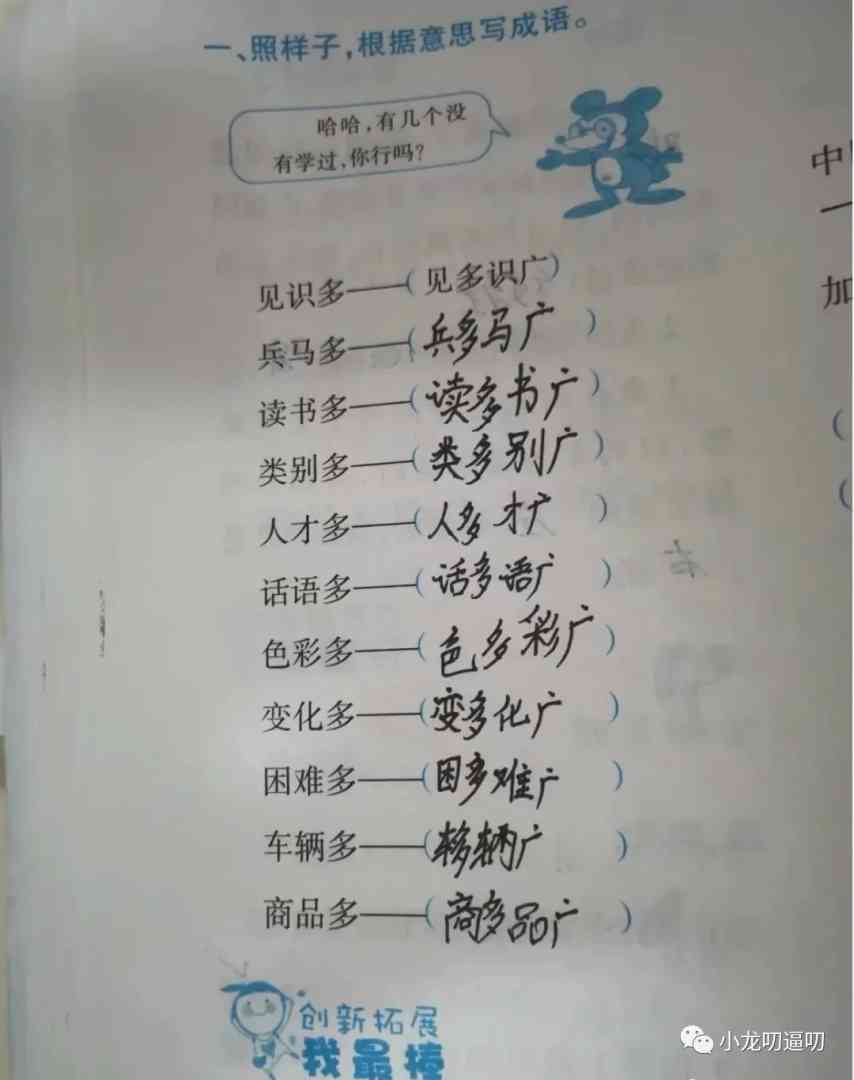 一、照样子,根据意思写成语。
哈哈,有几个没
有学过,你行吗?
见识多——(见多识广)
兵马多——(兵多马广)
读书多——(读多书广)
类别多——(类多别广)
人才多——(人多才广)
话语多——(话多语广)
色彩多——(色多彩广)
变化多——(变多化广)
困难多——(困多难广)
车辆多——(车多辆广)
商品多——(商多品广)
创新拓展
我最棒
中
一
加
(
(
小龙叨逼叨